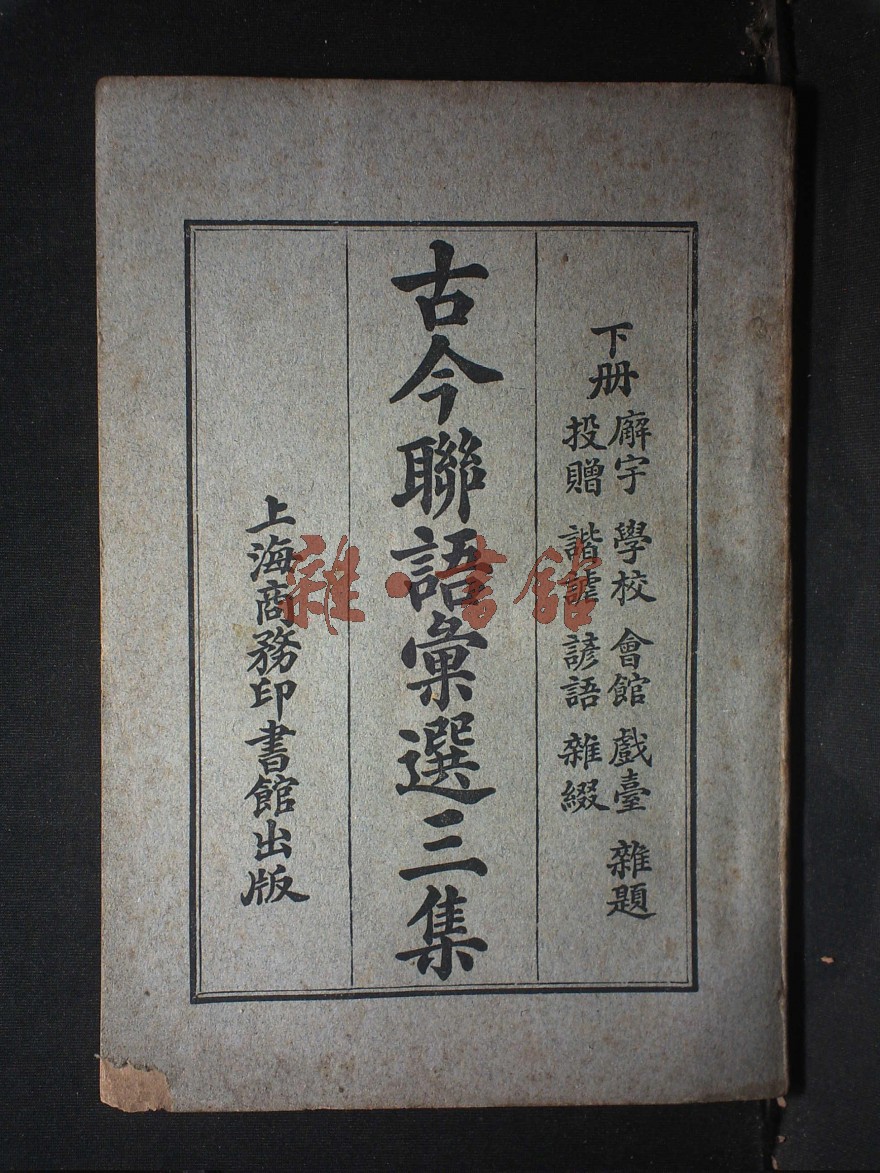 下册
廨宇 學校 會館 戲臺 雜題
投贈 諧謔 諺語 雜綴
古今聯語彙選三集
上海商務印書館出版
雜·書館